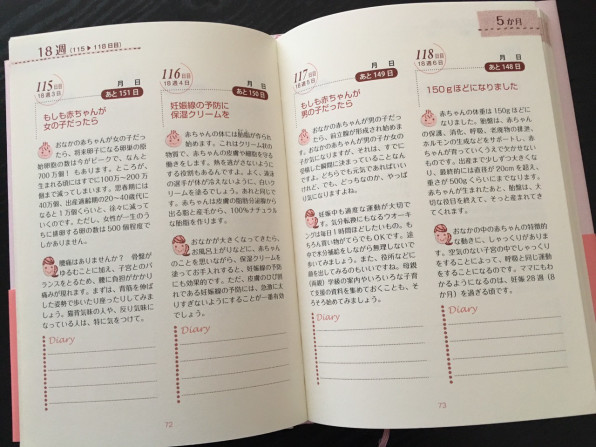 18週（115▶118日目）
115日目
18週3日
月　日
あと151日
もしも赤ちゃんが
女の子だったら
おなかの赤ちゃんが女の子だっ
たら、将来卵子になる卵巣の原
始卵胞の数は今がピークで、なんと
700万個！もあります。ところが、
生まれる頃にはすでに100万～200万
個まで減ってしまいます。思春期には
40万個、出産適齢期の20～40歳代に
なると1万個くらいと、徐々に減って
いくのです。ただし、女性が一生のう
ちに排卵する卵の数は500個程度でし
かありません。
腰痛はありませんか？　骨盤が
ゆるむことに加え、子宮とのバ
ランスをとるため、腰に負担がかかり
痛みが現れます。まずは、背筋を伸ば
した姿勢で歩いたり座ったりしてみま
しょう。猫背気味の人や、反り気味に
なっている人は、特に気をつけて。
Diary
72
116日目
18週4日
月　日
あと150日
妊娠線の予防に
保湿クリームを
赤ちゃんの体には胎脂が作られ
始めます。これはクリーム状の
物質で、赤ちゃんの皮膚や細胞を守る
働きをします。熱を逃がさないように
する役割もあるんですよ。よく、遠泳
の選手が体が冷えないように、白いク
リームを塗るでしょう。あれと同じで
す。赤ちゃんは皮膚の脂肪分泌腺から
出る脂と産毛から、100％ナチュラル
な胎脂を作ります。
おなかが大きくなってきたら、
お風呂上がりなどに、赤ちゃん
のことを思いながら、保湿クリームを
塗ってお手入れすると、妊娠線の予防
にも効果的です。ただ、皮膚のひび割
れである妊娠線の予防には、急激に太
りすぎないようにすることが一番有効
でしょう。
Diary
5か月
117日目
18週5日
月　日
あと149日
もしも赤ちゃんが
男の子だったら
おなかの赤ちゃんが男の子だっ
たら、前立腺が形成され始めま
す。おなかの赤ちゃんが男の子か女の
子か気になりますが、それは、すでに
受精した瞬間に決まっていることなん
ですよ。どちらでも元気であればいい
けれど、でも、どっちなのか、やっぱ
り気になりますよね。
妊娠中も適度な運動が大切で
す。気分転換にもなるウオーキ
ングは毎日1時間ほどしたいもの。も
ちろん買い物がてらでもOKです。途
中で水分補給をしながら無理しないで
歩いてみましょう。また、役所などに
顔を出してみるのもいいですね。母親
(両親)学級の案内やいろいろな子育
て支援の資料を集めておくことも、そ
ろそろ始めてみましょう。
Diary
118日目
18週6日
月　日
あと148日
150gほどになりました
赤ちゃんの体重は150gほどに
なりました。胎盤は、赤ちゃん
の保護、消化、呼吸、老廃物の排泄、
ホルモンの生成などをサポートし、赤
ちゃんが育っていくうえで欠かせない
ものです。出産まで少しずつ大きくな
り、最終的には直径が20cmを超え、
重さが500gくらいにまでなります。
赤ちゃんが生まれたあと、胎盤は、大
切な役目を終えて、そっと産まれてき
てくれます。
おなかの中の赤ちゃんの特徴的
な動きに、しゃっくりがありま
す。空気のない子宮の中でしゃっくり
をすることによって、呼吸と同じ運動
をすることになるのです。ママにもわ
かるようになるのは、妊娠28週（8
か月）を過ぎる頃です。
Diary
73